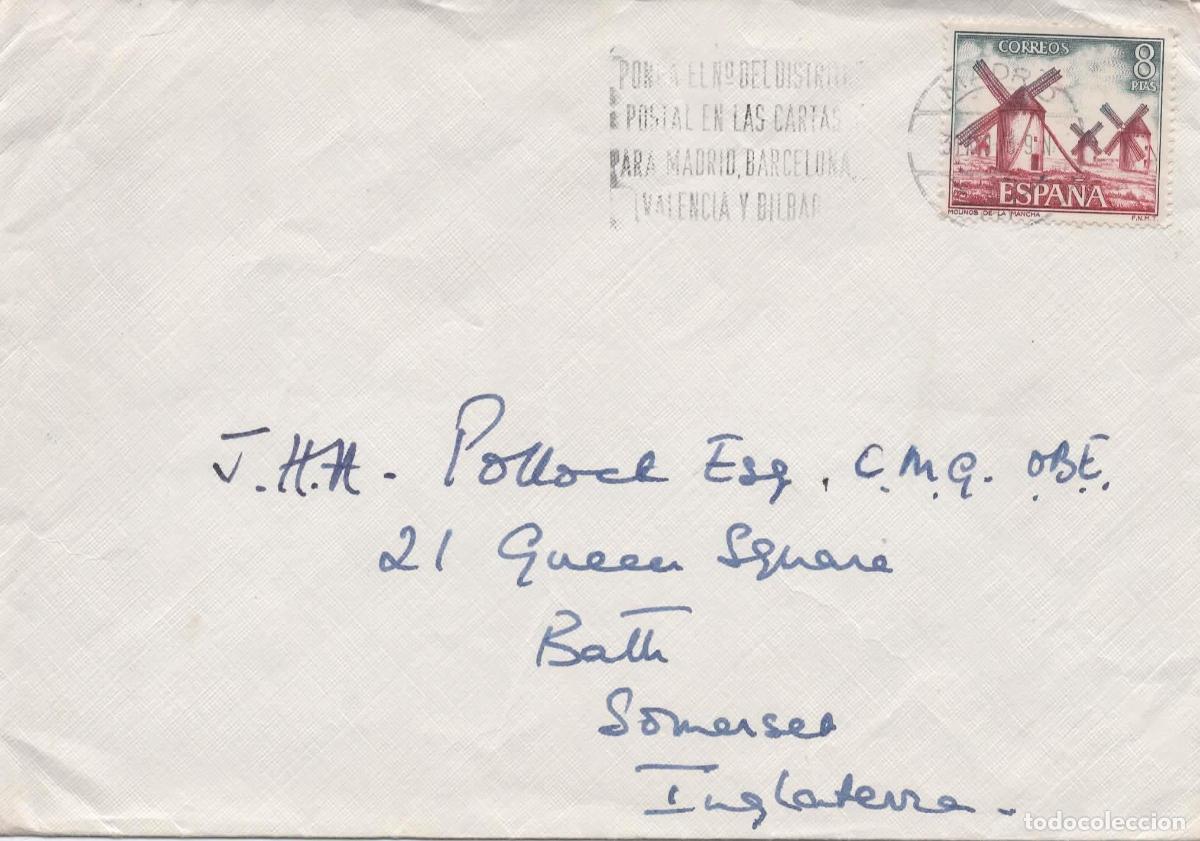 PONGA EL Nº DEL DISTRITO
POSTAL EN LAS CARTAS
PARA MADRID, BARCELONA,
VALENCIA Y BILBAO
CORREOS
8
PTAS
ESPAÑA
MOLINOS DE LA MANCHA
F.N.M.T.
J.H.A. Pollock Esq. C.M.G. O.B.E.
21 Queen Square
Bath
Somerset
Inglaterra.
todocoleccion